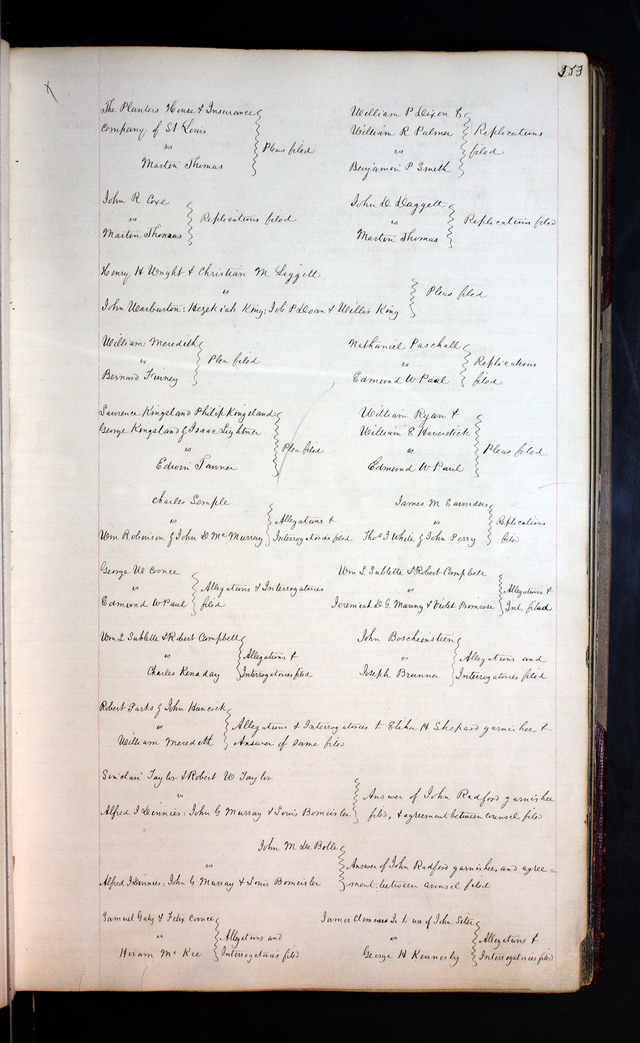 353
The Planters House & Insurance
Company of St Louis
vs
Martin Thomas
Pleas filed
William P Dixon &
William R Palmer
vs
Benjamin P Smith
Replications
filed
John R Coxe
vs
Martin Thomas
Replications filed
John D Daggett
vs
Martin Thomas
Replications filed
Henry H Wright & Christian M Liggett
vs
John Warburton: Hezekiah King: Job P Doan & Willis King
Pleas filed
William Meredith
vs
Bernard Finney
Plea filed
Nathaniel Paschall
vs
Edmund W Paul
Replications
filed
Lawrence Kingsland Philip Kingsland
George Kingsland & Isaac Lightner
vs
Edwin Tanner
Plea filed
William Ryan &
William E Haverstick
vs
Edmund W Paul
Pleas filed
Charles Semple
vs
Wm Robinson & John D McMurray
Allegations &
Interrogatories filed
James M
vs
Thos J White & John Perry
Replications
filed
George W Coonce
vs
Edmund W Paul
Allegations & Interrogatories
filed
Wm L Sublette & Robert Campbell
vs
Jeremiah D G & Violet
Allegations &
Int. filed
Wm L Sublette & Robert Campbell
vs
Charles Kenaday
Allegations &
Interrogatories filed
John
vs
Joseph Brunner
Allegations and
Interrogatories filed
Robert Parks & John Hancock
vs
William Meredith
Allegations & Interrogatories to Elihu H Shepard garnishee &
Answer of same filed
Sinclair Taylor & Robert W Taylor
vs
Alfred J Dinnies: John G Murray & Louis Bomeister
Answer of John Radford garnishee
filed, & agreement between counsel filed
John M De Bolle
vs
Alfred J Dinnies: John G Murray & Louis Bomeister
Answer of John Radford garnishee, and agree=
ment between counsel filed
Samuel Gaty & Felix Coonce
vs
Hiram McKee
Allegations and
Interrogatories filed
James Clemens Jr to use of John
vs
George H Kennerly
Allegations &
Interrogatories filed